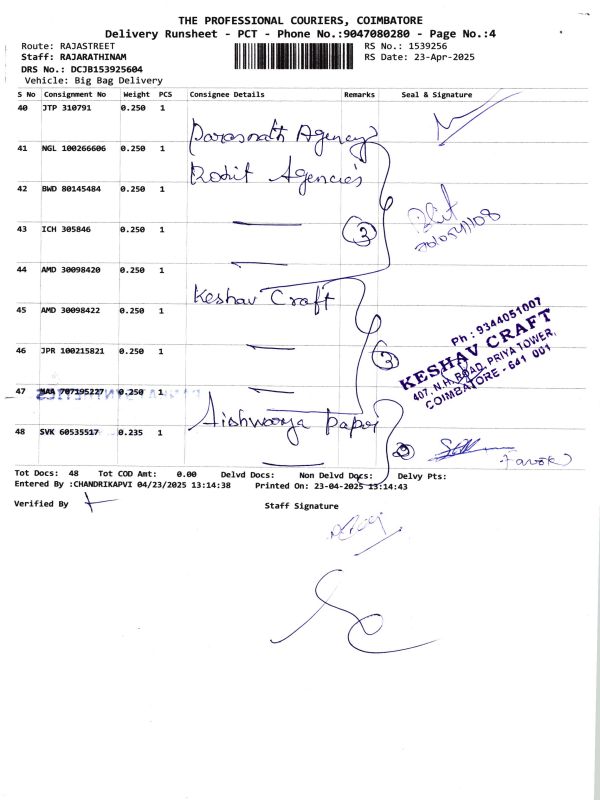 THE PROFESSIONAL COURIERS, COIMBATORE
Delivery Runsheet - PCT - Phone No.:9047080280 - Page No.:4
Route: RAJASTREET RS No.: 1539256
Staff: RAJARATHINAM RS Date: 23-Apr-2025
DRS No.: DCJB153925604
Vehicle: Big Bag Delivery
S No Consignment No Weight PCS Consignee Details Remarks Seal & Signature
40 JTP 310791 0.250 1
Parasnath Agency
41 NGL 100266606 0.250 1
Rohit Agencies
42 BWD 80145484 0.250 1
43 ICH 305846 0.250 1
3
44 AMD 30098420 0.250 1
Keshav Craft
45 AMD 30098422 0.250 1
Ph : 9344051007
KESHAV CRAFT
407, N.H. ROAD, PRIYA TOWER,
COIMBATORE - 641 001
46 JPR 100215821 0.250 1
3
47 MAA 707195227 0.250 1
Aishwarya Paper
48 SVK 60535517 0.235 1
2
Tot Docs: 48 Tot COD Amt: 0.00 Delvd Docs: Non Delvd Docs: Delvy Pts:
Entered By :CHANDRIKAPVI 04/23/2025 13:14:38 Printed On: 23-04-2025 13:14:43
Verified By Staff Signature